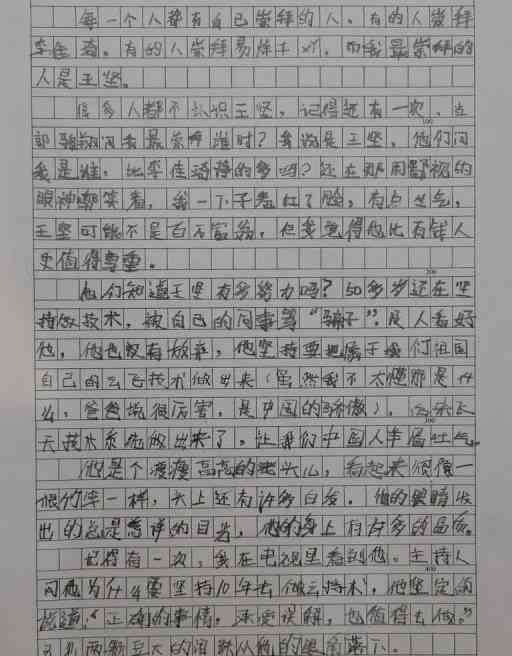 每一个人都有自己崇拜的人。有的人崇拜
李佳琦。有的人崇拜易烊千玺。而我最崇拜的
人是王坚。
很多人都不认识王坚，记得还有一次，
100
问我最崇拜谁时？我说是王坚，他们问
我是谁，比李佳琦挣的多吗？还在那用鄙视的
眼神嘲笑着，我一下子卷红了脸，有点生气，
王坚可能不是百万富翁，但我觉得他比有钱人
更值得尊重。
200
他们知道王坚有多努力吗？50多岁还在坚
持做技术，被自己的同事骂“骗子”。没人看好
他，他也没有放弃，他坚持要把属于我们祖国
自己的云技术做出来（虽然我不太懂那是什
么，爸爸说很厉害，是中国的骄傲），
300
天技术系统做出来了，让我们中国人扬眉吐气。
他是个瘦瘦高高的老头儿，看起来很像一
根竹竿一样，头上还有许多白发。他的眼睛发
出的总是的目光，他的身上有许多的品质。
记得有一次，我在电视里看到他。主持人
400
问他为什么要坚持10年去做云技术，他坚定的
说道：“正确的事情，承受误解，也值得去做。”
两颗豆大的泪珠从他的眼角落下。